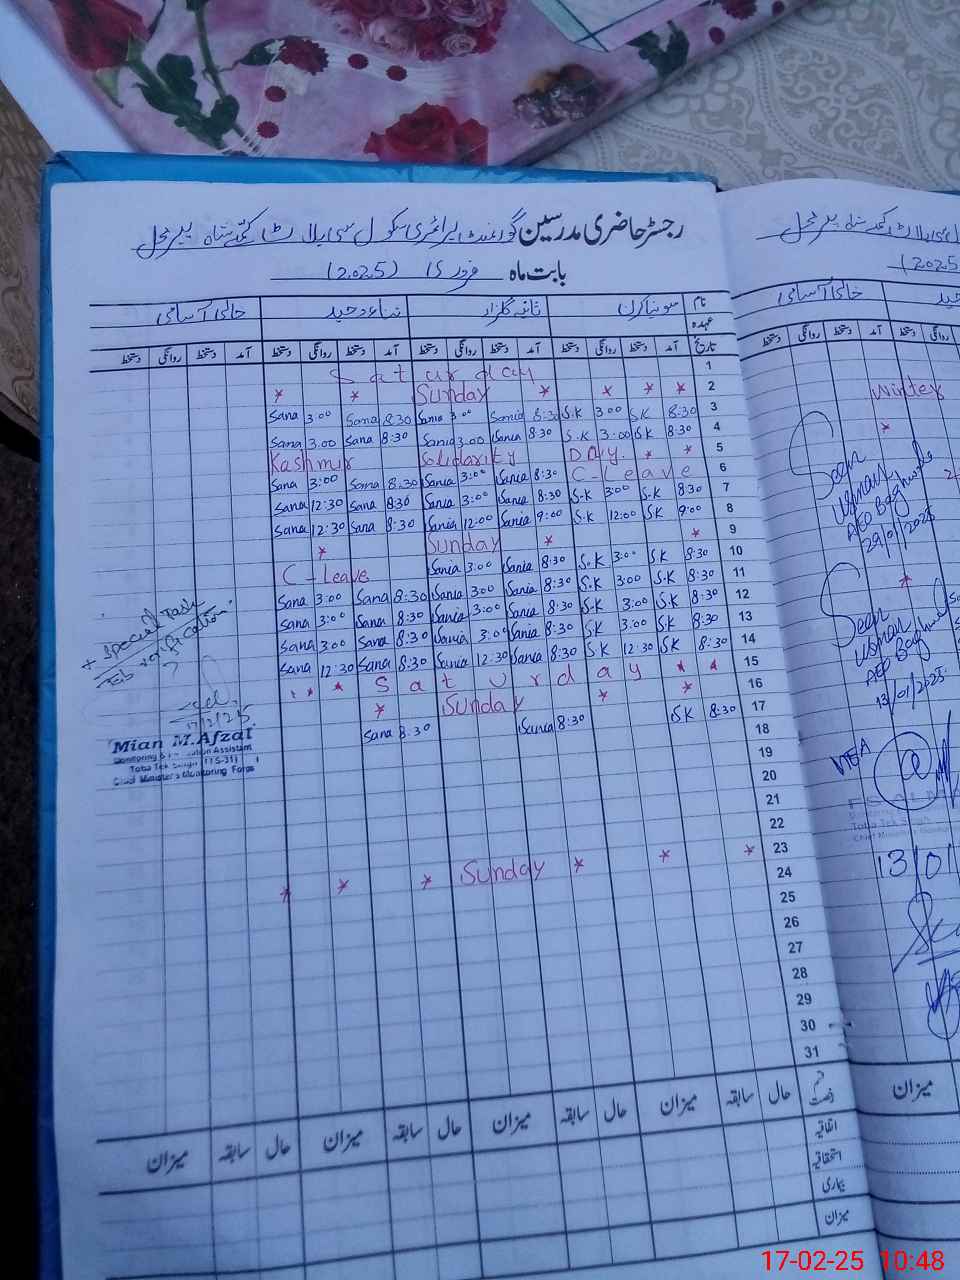 رجسٹر حاضری مدرسین گورنمنٹ پرائمری سکول سی پلاٹ شاہ پیر محل
بابت ماہ فروری (2025)
نام سونیا کرن ثانیہ گلزار ثناء وحید خالی آسامی
عہدہ
تاریخ آمد دستخط روانگی دستخط آمد دستخط روانگی دستخط آمد دستخط روانگی دستخط آمد دستخط روانگی دستخط
Saturday 1
* * Sunday * * * * 2
Sana 3:00 Sana 8:30 Sania 3:00 Sania 8:30 S.K 3:00 SK 8:30 3
Sana 3.00 Sana 8:30 Sania 3:00 Sania 8:30 S.K 3:00 SK 8:30 4
Kashmir Solidarity DAY. * * 5
Sana 3:00 Sana 8:30 Sania 3:00 Sania 8:30 C-Leave 6
Sana 12:30 Sana 8:30 Sania 3:00 Sania 8:30 S.K 3:00 S.K 8:30 7
Sana 12:30 Sana 8:30 Sania 12:00 Sania 9:00 S.K 12:00 SK 9:00 8
* Sunday * * 9
C-Leave Sania 3:00 Sania 8:30 S.K 3:00 S.K 8:30 10
Sana 3:00 Sana 8:30 Sania 3:00 Sania 8:30 S.K 3:00 S.K 8:30 11
Sana 3:00 Sana 8:30 Sania 3:00 Sania 8:30 S.K 3:00 S.K 8:30 12
Sana 3:00 Sana 8:30 Sania 3:00 Sania 8:30 S.K 3:00 SK 8:30 13
Sana 12:30 Sana 8:30 Sania 12:30 Sania 8:30 S.K 12:30 SK 8:30 14
* * Saturday * * 15
* Sunday * * 16
Sana 8:30 Sania 8:30 S.K 8:30 17
18
19
20
21
22
* * * Sunday * * * 23
24
25
26
27
28
29
30
31
+ Special Task
Tab verification.
17/2/25
Mian M.Afzal
Monitoring & Assistant
Toba Tek Singh (TS-31)
Chief Minister's Monitoring Force
قسم رخصت حال سابقہ میزان حال سابقہ میزان حال سابقہ میزان حال سابقہ میزان
اتفاقیہ
استحقاقیہ
بیماری
میزان
شاہ پیر محل
(2025
خالی آسامی
آمد دستخط روانگی دستخط
Winter
*
Seen
Usman
AEO
29/01/2025
*
Seen
Usman
AEO
13/01/2025
MEA
Toba Tek Singh
Chief Minister's
13/01
میزان
17-02-25 10:48